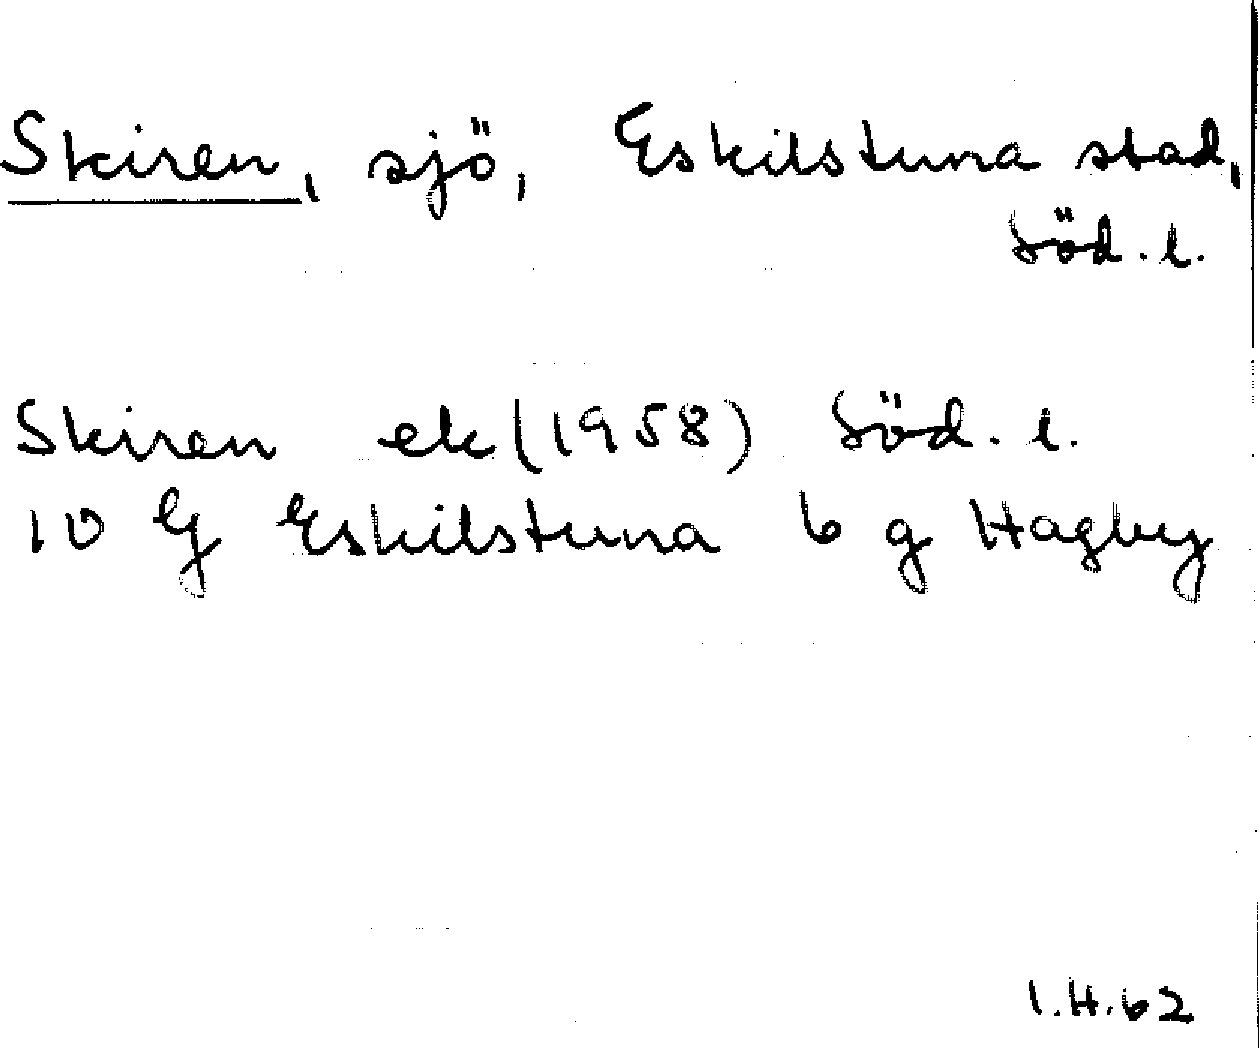 Skiren, sjö, Eskilstuna stad,
Söd. l.
Skiren ek (1958) Söd. l.
10 G Eskilstuna 6 g Hagby
I.H. 62